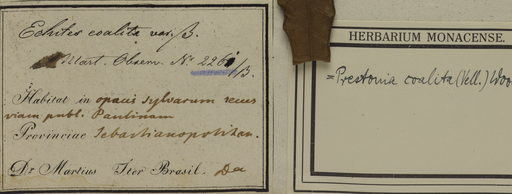 Echites coalita var. β.
Mart. Obsem. No. 2261/β.
Habitat in opacis sylvarum secus
viam publ. Paulinam
Provinciae Sebastianopolitan.
Dr. Martius Iter Brasil. Dec
HERBARIUM MONACENSE.
=Prestonia coalita (Vell.) Woo